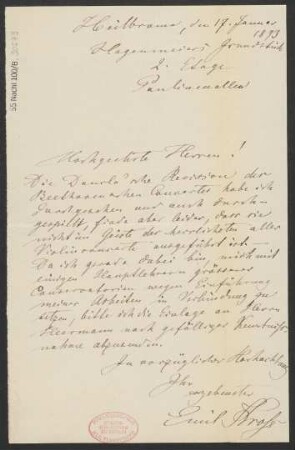 Heilbronn, den 19. Januar
1893
Hagenmeiers Grundstück
2. Etage
Paulinenallee
Hochgeehrte Herren!
Die Dancla'sche Revision des
Beethovenschen Concertes habe ich
durchgesehen und auch durch-
gespielt, finde aber leider, dass sie
nicht im Geiste des herrlichsten aller
Violinconcerte ausgeführt ist.
Da ich gerade dabei bin, mich mit
einigen Hauptlehrern grösserer
Conservatorien wegen Einführung
meiner Arbeiten in Verbindung zu
setzen, bitte ich die Einlage an Herrn
Heermann nach gefälliger Kenntniss-
nahme absenden.
In vorzüglicher Hochachtung
Ihr
ergebenster
Emil Kross